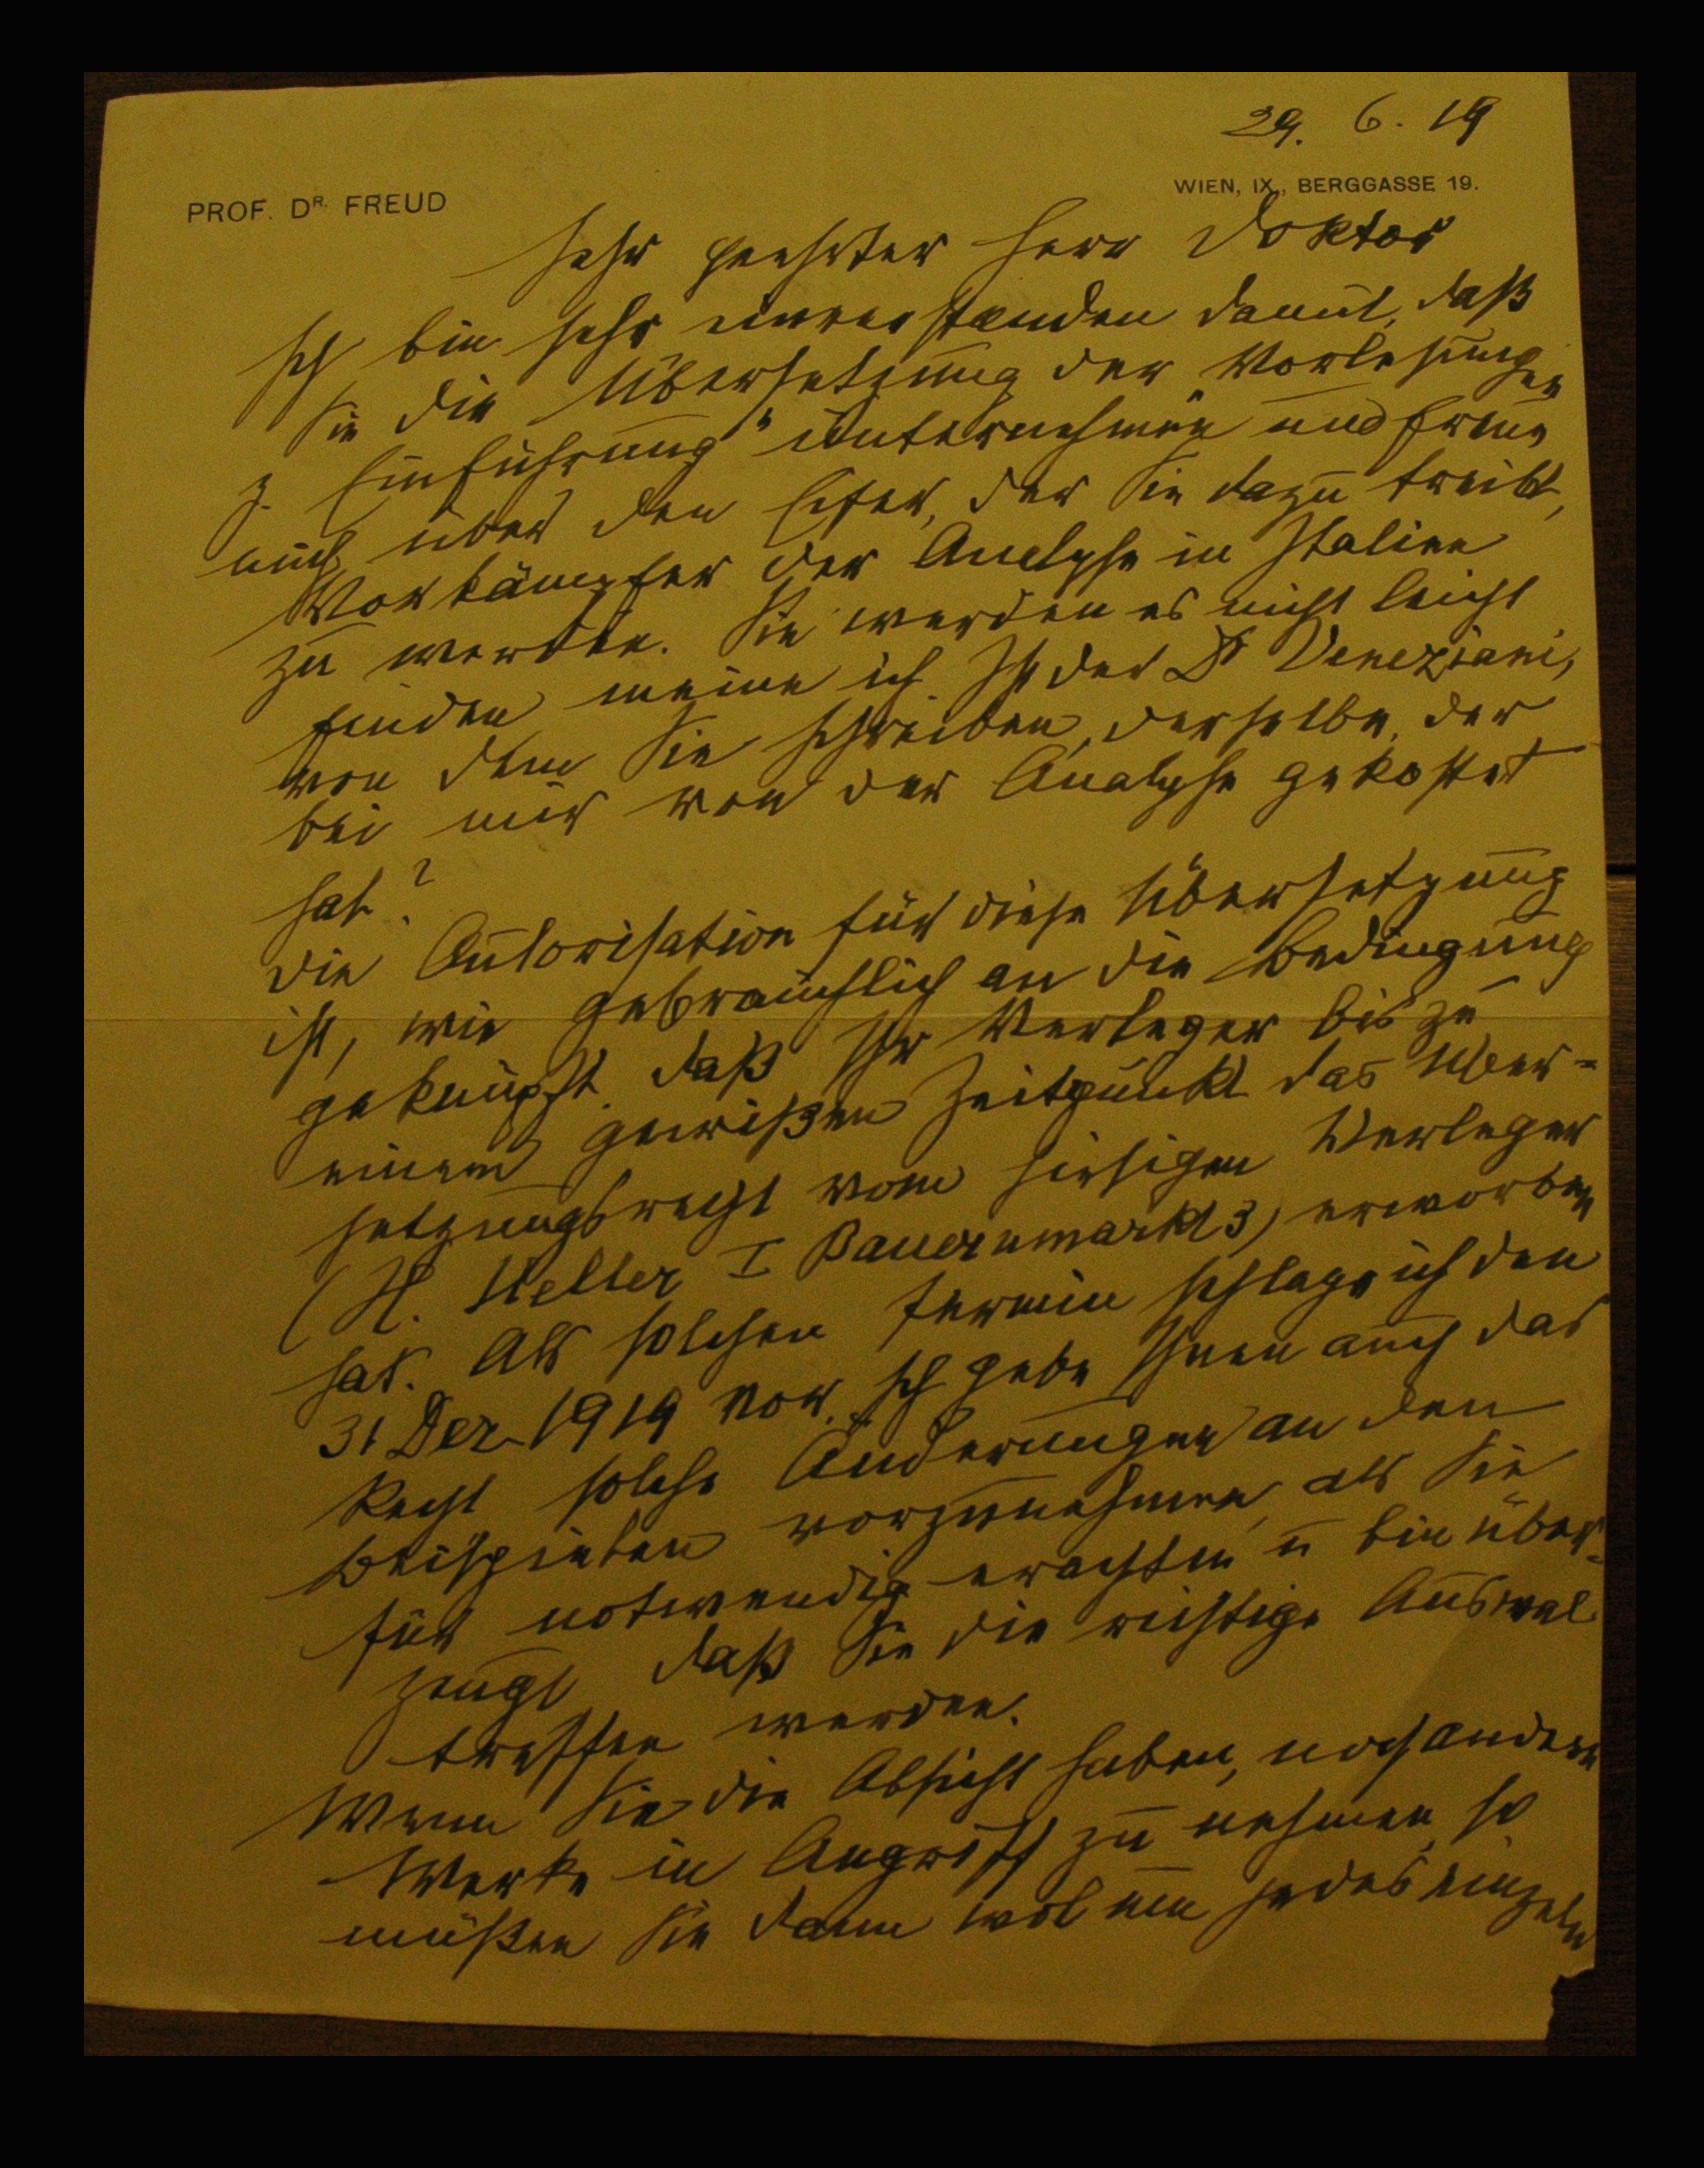 29. 6. 19
PROF. DR. FREUD
WIEN, IX., BERGGASSE 19.
Sehr geehrter Herr Doktor
Ich bin sehr einverstanden damit, daß
Sie die Übersetzung der „Vorlesungen
z. Einführung“ unternehmen und freue
mich über den Eifer, der Sie dazu treibt,
Vorkämpfer der Analyse in Italien
zu werden. Sie werden es nicht leicht
finden meine ich. Ist der Dr Veneziani,
von dem Sie schreiben, derselbe, der
bei mir von der Analyse gekostet
hat?
Die Autorisation für diese Übersetzung
ist, wie gebräuchlich an die Bedingung
geknüpft, daß Ihr Verleger bis zu
einem gewißen Zeitpunkt das Über-
setzungsrecht vom hiesigen Verleger
(H. Heller I Bauernmarkt 3) erworben
hat. Als solchen Termin schlage ich den
31 Dez 1919 vor. Ich gebe Ihnen auch das
Recht solche Änderungen an den
Beispielen vorzunehmen, als Sie
für notwendig erachten u bin über-
zeugt daß Sie die richtige Auswal
treffen werden.
Wenn Sie die Absicht haben, noch andere
Werke in Angriff zu nehmen, so
müßen Sie dann wol um jedes einzeln